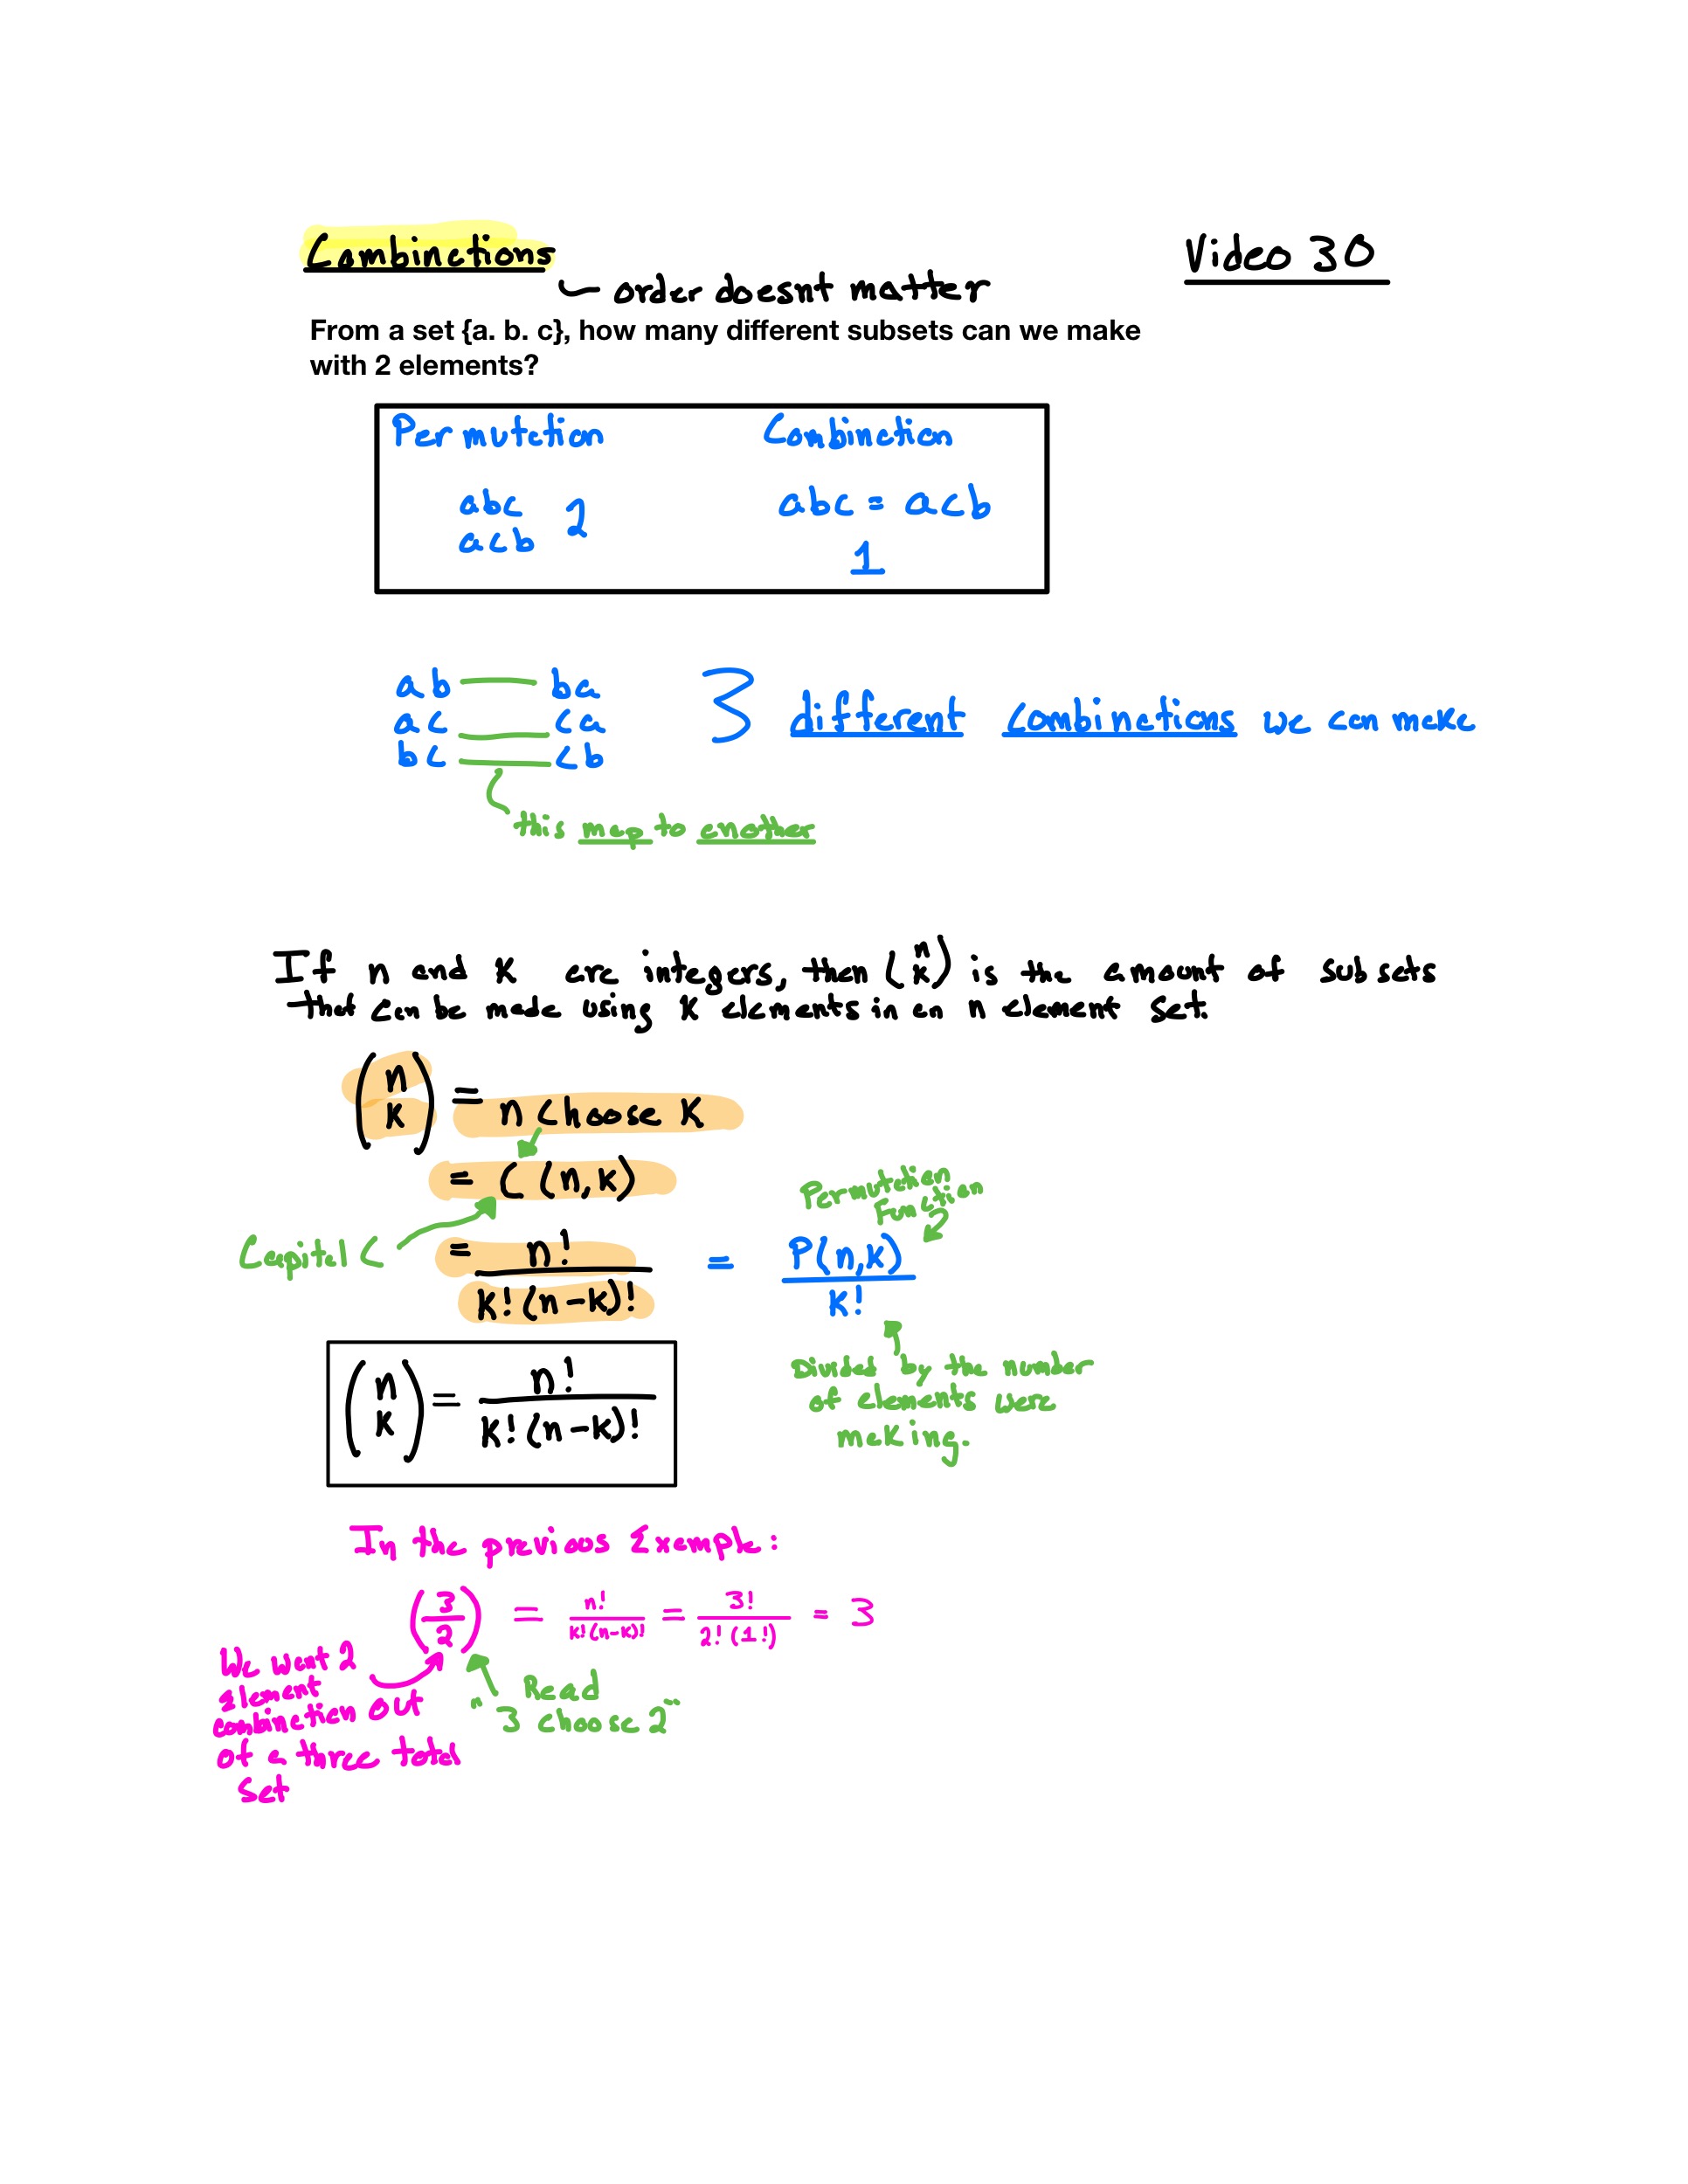 Combinations
Video 30
order doesnt matter
From a set {a. b. c}, how many different subsets can we make
with 2 elements?
Permutation Combination
abc 2 abc = acb
acb
1
ab ba
ac ca
bc cb
3 different combinations we can make
this map to another
If n and k are integers, then (n k) is the amount of subsets
that can be made using k elements in an n element set.
(n k) = n choose k
= C (n,k)
Permutation
Function
Capital C
= n! / k!(n-k)! = P(n,k) / k!
Divided by the number
of elements were
making.
(n k) = n! / k!(n-k)!
In the previous Example:
(3/2) = n! / k!(n-k)! = 3! / 2!(1!) = 3
We want 2
Element
combination out
of a three total
set
Read
"3 choose 2"